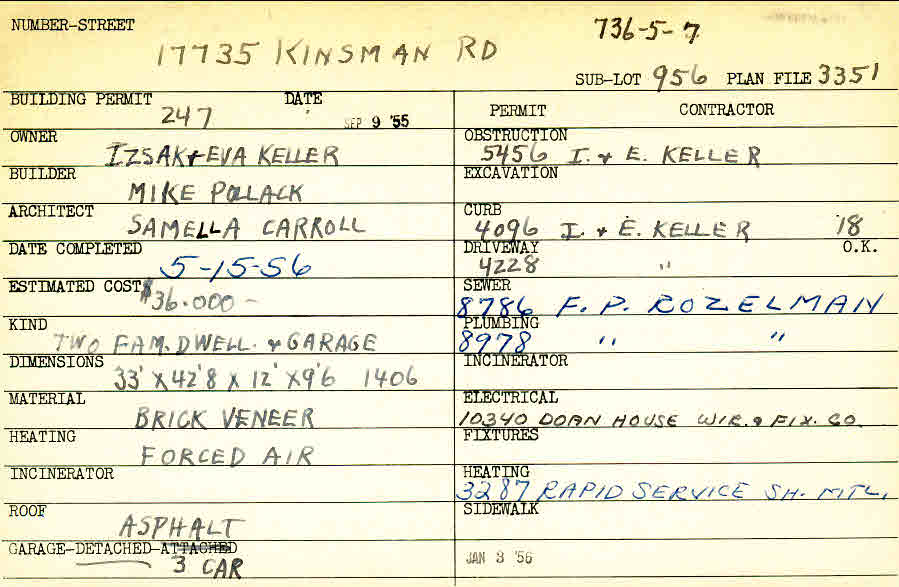 NUMBER-STREET
17735 KINSMAN RD
736-5-7
SUB-LOT 956 PLAN FILE 3351
BUILDING PERMIT DATE
247 SEP 9 '55
OWNER
IZSAK + EVA KELLER
BUILDER
MIKE POLLACK
ARCHITECT
SAMELLA CARROLL
DATE COMPLETED
5-15-56
ESTIMATED COST
$36.000 -
KIND
TWO FAM. DWELL. + GARAGE
DIMENSIONS
33' X 42'8 X 12' X 9'6 1406
MATERIAL
BRICK VENEER
HEATING
FORCED AIR
INCINERATOR
ROOF
ASPHALT
GARAGE-DETACHED-ATTACHED
3 CAR
PERMIT CONTRACTOR
OBSTRUCTION
5456 I. + E. KELLER
EXCAVATION
CURB
4096 I. + E. KELLER 18
DRIVEWAY O.K.
4228 "
SEWER
8786 F. P. ROZELMAN
PLUMBING
8978 " "
INCINERATOR
ELECTRICAL
10340 DOAN HOUSE WIR. & FIX. CO.
FIXTURES
HEATING
3287 RAPID SERVICE SH. MTL.
SIDEWALK
JAN 3 '56